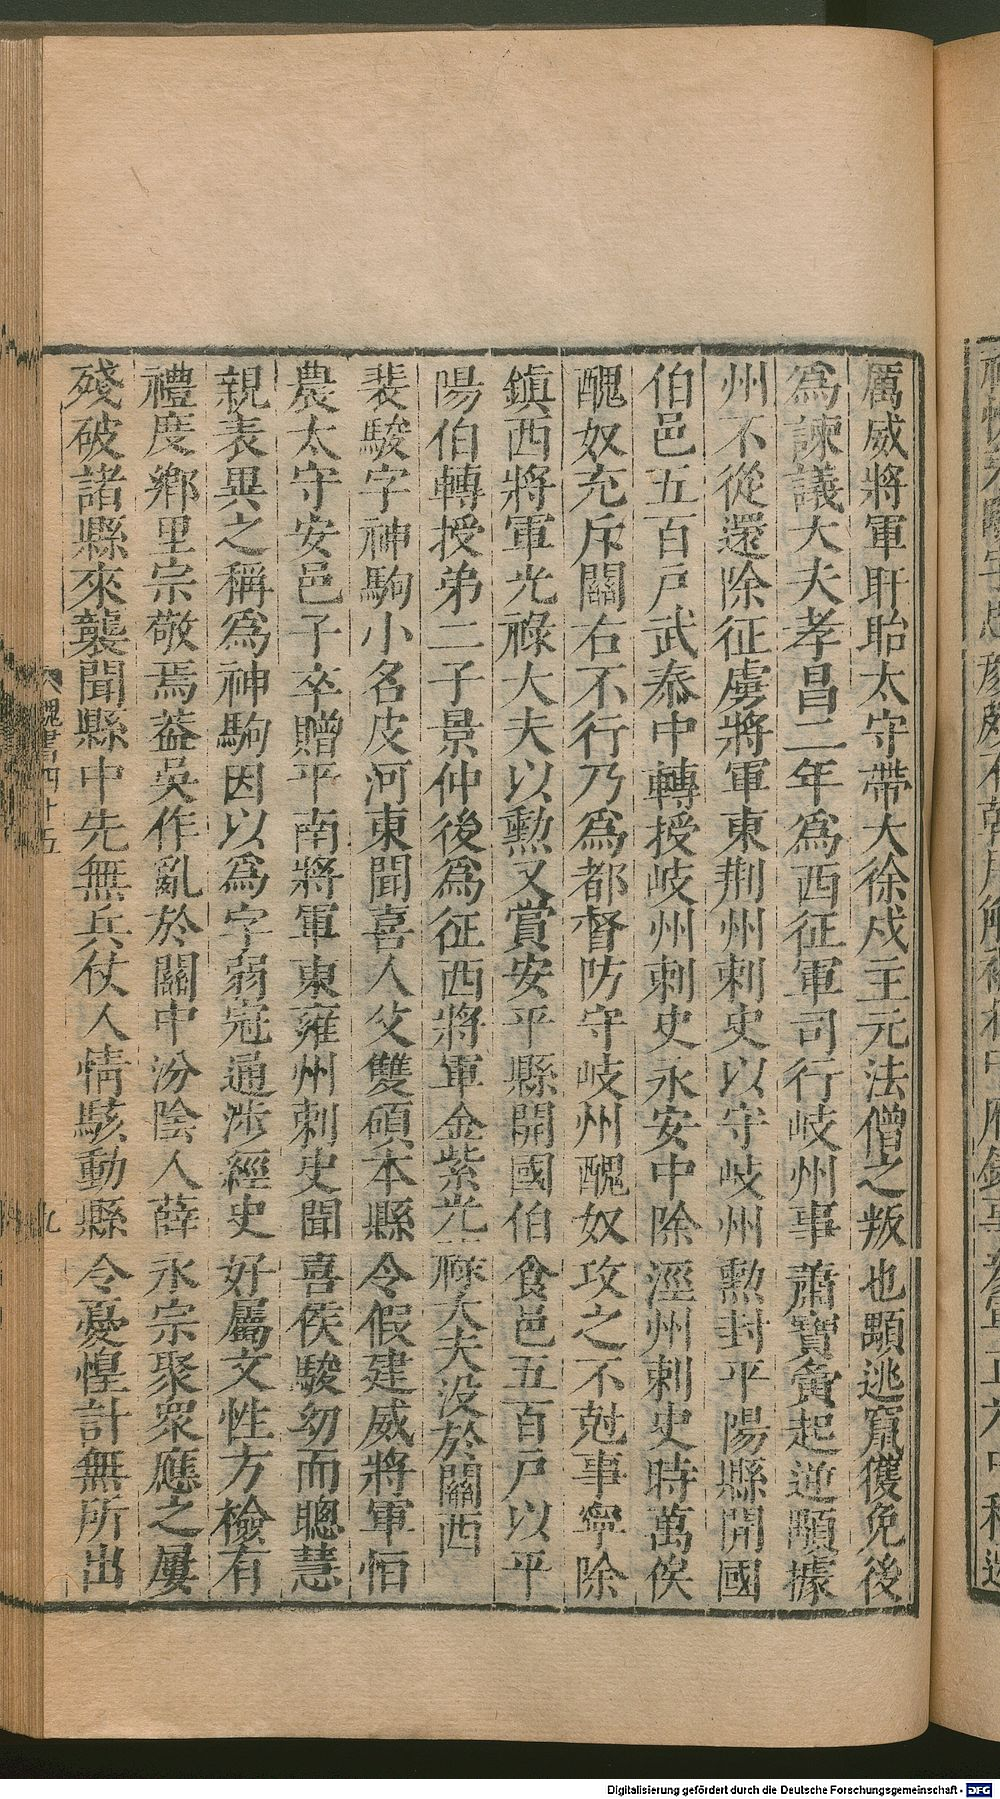 厲威將軍盱眙太守帶大徐戍主元法僧之叛也顯逃竄獲免後
為諫議大夫孝昌二年為西征軍司行岐州事蕭寶夤起逆顯據
州不從還除征虜將軍東荆州刺史以守岐州勲封平陽縣開國
伯邑五百戸武泰中轉授岐州刺史永安中除涇州刺史時萬俟
醜奴充斥關右不行乃為都督防守岐州醜奴攻之不尅事寧除
鎮西將軍光祿大夫以勲又賞安平縣開國伯食邑五百戸以平
陽伯轉授弟二子景仲後為征西將軍金紫光祿大夫没於關西
裴駿字神駒小名皮河東聞喜人父雙碩本縣令假建威將軍恒
農太守安邑子卒贈平南將軍東雍州刺史聞喜侯駿幼而聰慧
親表異之稱為神駒因以為字弱冠通涉經史好屬文性方檢有
禮度鄉里宗敬焉葢吳作亂於關中汾陰人薛永宗聚衆應之屢
殘破諸縣來襲聞縣中先無兵仗人情駭動縣令憂惶計無所出
魏書四十五
九
Digitalisierung gefördert durch die Deutsche Forschungsgemeinschaft - DFG